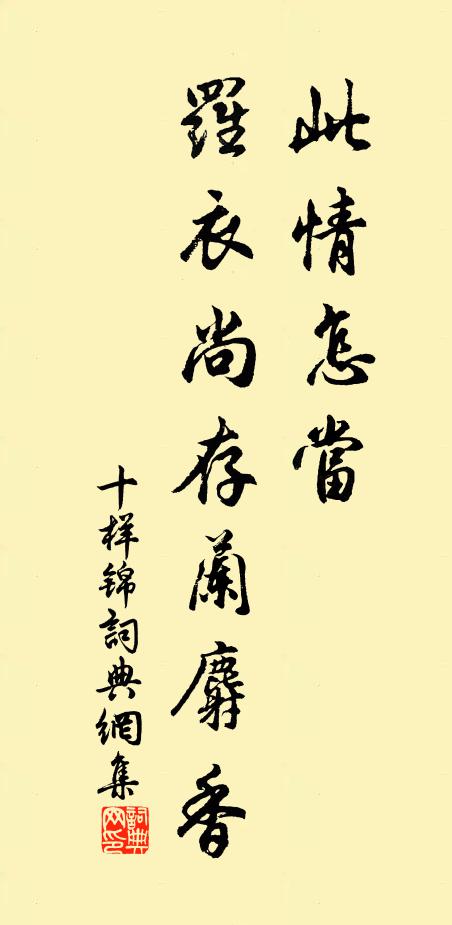 此情怎當
羅衣尚存蘭麝香
十样锦詞典網集
詞典网印